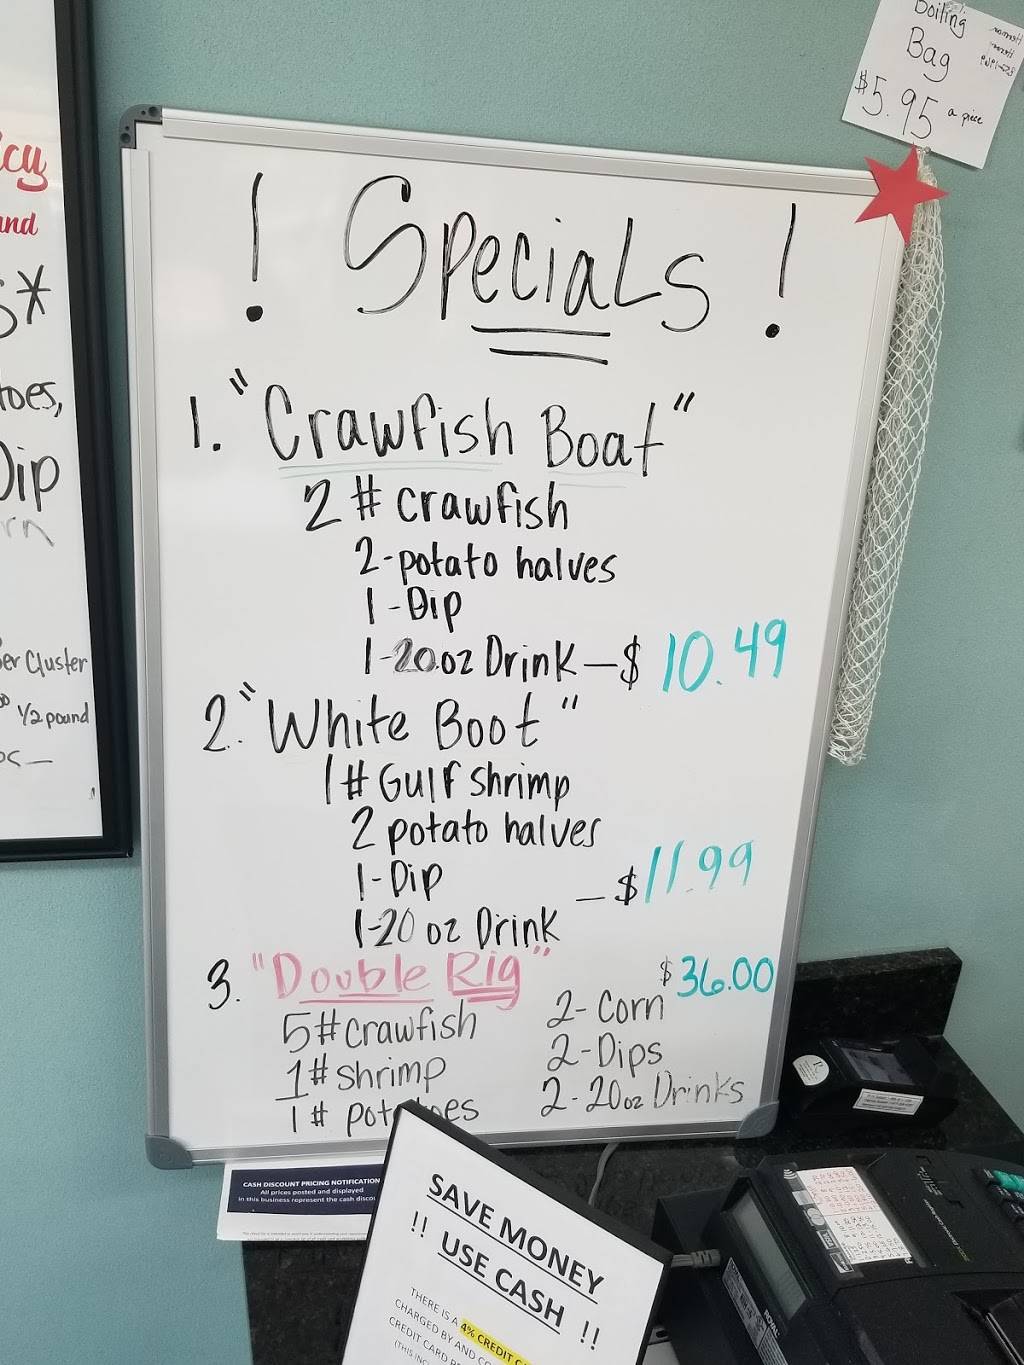 ! Specials !
1. "Crawfish Boat"
2 # crawfish
2-potato halves
1-Dip
1-20oz Drink — $ 10.49
2. "White Boot"
1 # Gulf shrimp
2 potato halves
1-Dip — $11.99
1-20 oz Drink
3. "Double Rig" $36.00
5# crawfish
1# shrimp
1# potatoes
2- Corn
2-Dips
2-20oz Drinks
Boiling
Bag
$5.95 a piece
and
toes,
Dip
per Cluster
1/2 pound
CASH DISCOUNT PRICING NOTIFICATION
All prices posted and displayed
in this business represent the cash
SAVE MONEY
!! USE CASH !!
THERE IS A 4% CREDIT
CHARGED BY AND
CREDIT CARD